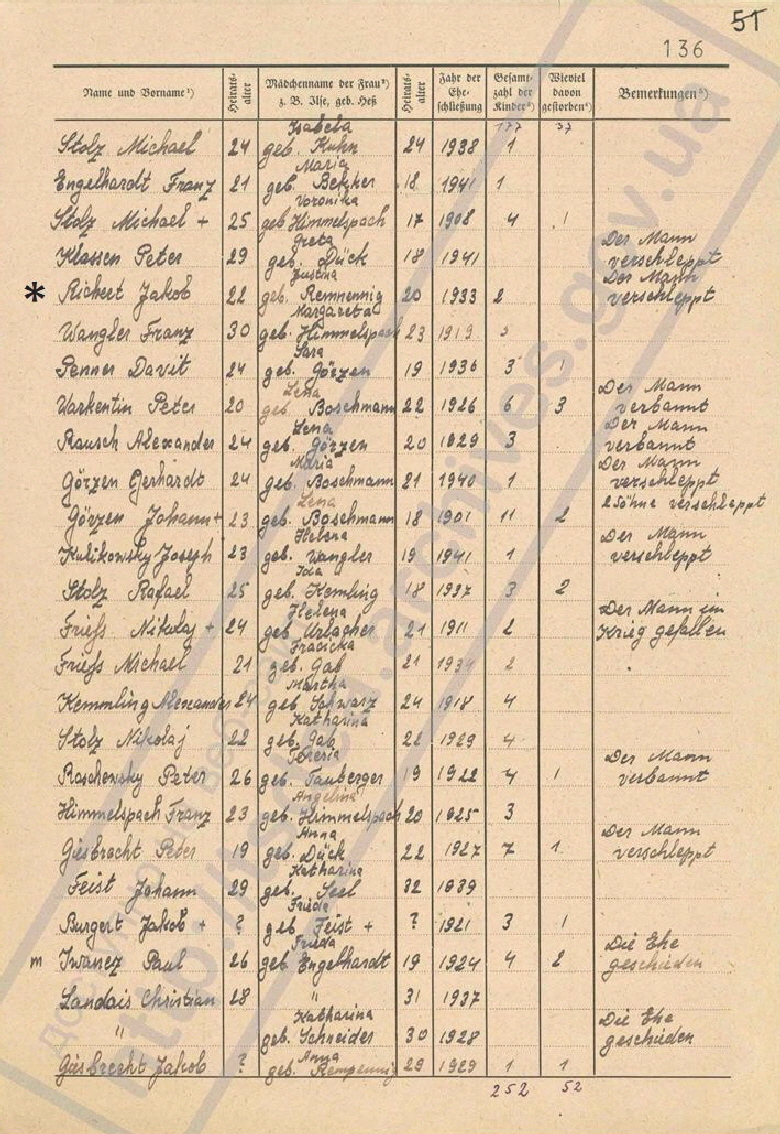 51
136
Name und Vorname¹) Heirats-alter Mädchenname der Frau³) z. B. Ilse, geb. Heß Heirats-alter Jahr der Ehe-schließung Gesamt-zahl der Kinder⁴) Wieviel davon gestorben⁴) Bemerkungen⁵)
Isabela 137 37
Stolz Michael 24 geb. Kuhn 24 1938 1
Maria
Engelhardt Franz 21 geb. Bekker 18 1941 1
Voronika
Stolz Michael + 25 geb Himmelspach 17 1908 4 1
Greta Der Mann
Klassen Peter 29 geb. Dück 18 1941 verschleppt
Justina Der Mann
* Richert Jakob 22 geb. Rempennig 20 1933 2 verschleppt
Margareta
Wangler Franz 30 geb. Himmelspach 23 1919
Sara
Penner Davit 24 geb. Görzen 19 1936 3 1
Lena Der Mann
Varkentin Peter 20 geb Boschmann 22 1926 6 3 verbannt
Lena Der Mann
Rausch Alexander 24 geb. Görzen 20 1929 3 verbannt
Maria Der Mann
Görzen Gerhardt 24 geb. Boschmann 21 1940 1 verschleppt
Lena 2 Söhne verschleppt
Görzen Johann + 23 geb. Boschmann 18 1901 11 2
Helena Der Mann
Kulikowsky Joseph 23 geb. Wangler 19 1941 1 verschleppt
Ida
Stolz Rafael 25 geb. Kemling 18 1937 3 2
Helena Der Mann im
Frieß Nikolaj + 24 geb Urlacher 21 1911 2 Krieg gefallen
Frieß Michael 21 geb. Gab 21 2
Martha
Kemmling Alexander 24 geb Schwarz 24 1918 4
Katharina
Stolz Nikolaj 22 geb. Gab 22 1929 4
Theresia Der Mann
Raschowsky Peter 26 geb. Tauberger 19 1922 4 1 verbannt
Angelina
Himmelspach Franz 23 geb. Himmelspach 20 1925 3
Anna Der Mann
Giesbracht Peter 19 geb. Dück 22 1927 7 1 verschleppt
Katharina
Feist Johann 29 geb. Seel 32 1939
Frieda
Burgert Jakob + ? geb Feist + ? 1921 3 1
Frieda Die Ehe
m Iwanez Paul 26 geb Engelhardt 19 1924 4 2 geschieden
Landais Christian 28 " 31 1937
Katharina Die Ehe
" geb. Schneider 30 1928 geschieden
Anna
Giesbrecht Jakob ? geb. Rempennig 29 1929 1 1
252 52